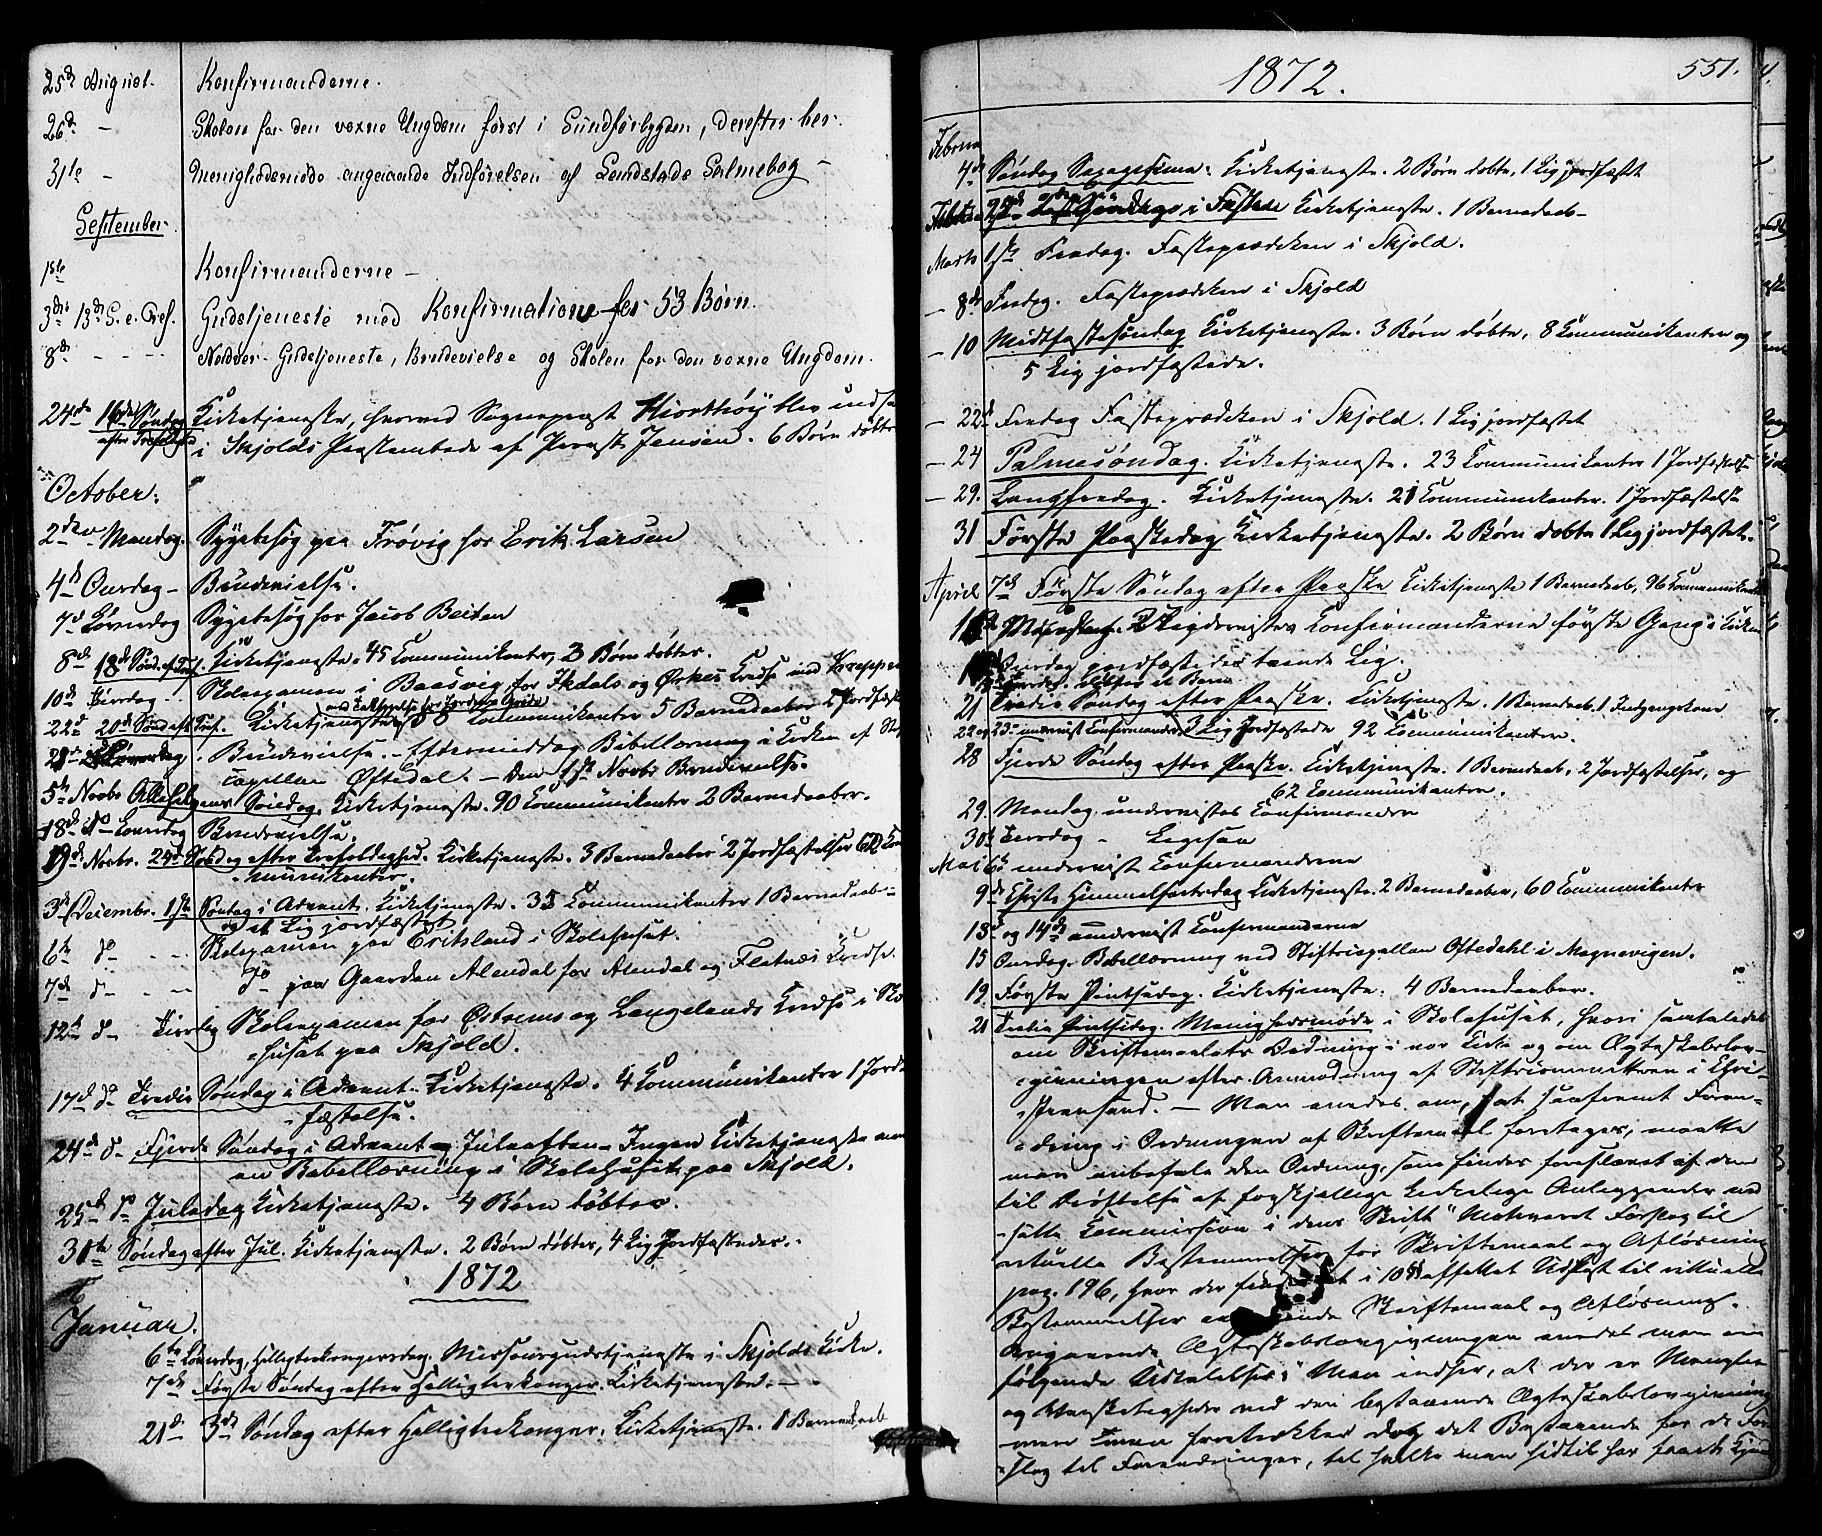 25de August. Konfirmanderne.
26de - Skolen for den voxne Ungdom først i Sundførbygden, derefter her.
31te - Menighedsmøde angaaende Indførelsen af Landstads Salmebog -
September.
1ste Konfirmanderne -
3die 13de S. e. Tref. Gudstjeneste med Konfirmation for 53 Børn.
8de - - - - Nadver-Gudstjeneste, Brudevielse og Skolen for den voxne Ungdom.
24de 16de Søndag Kirketjeneste, hvorved Sognepræst Hiorthøy blev indsa
efter Trefoldighed i Skjolds Præsteembede af Provst Jensen. 6 Børn døbte
October.
2den Mandag. Sygebesøg paa Frøvig hos Erik Larsen
4de Onsdag - Brudevielse.
7de Løverdag Sygebesøg hos Jacob Beiten
8de 18de Sønd. ef. Tref. Kirketjeneste. 45 Communikanter, 3 Børn døbte.
10de Tirsdag - Skoleexamen i Baasvig for Ikdals og Ørkes Kreds ved
22de 20de Sønd. eft. Tref. Kirketjeneste 8 Communikanter 5 Barnedaaber 2 Jordfæst
28de Løverdag. Brudevielse. - Eftermiddag Bibellæsning i Kirken af St
Capellan Oftedal. - Den 1ste Novbr Brudevielse.
5te Novbr Allehelgens Søndag. Kirketjeneste. 90 Communikanter 2 Barnedaaber.
18de do Løverdag Brudevielse.
19de Novbr. 24de Søndag efter Trefoldighed. Kirketjeneste. 3 Barnedaaber 2 Jordfæstelser Com
munikanter.
3de Decembr. 1ste Søndag i Advent. Kirketjeneste. 35 Communikanter 1 Barnedaab -
og et Lig jordfæstet
6te do - - Skoleexamen paa Eritsland i Skolehuset.
7de do - - - Do paa Gaarden Alendal for Alendal og Flatnes Kreds.
12te do - Tirsdag Skoleexamen for Østrems og Langelands Kreds i Sko
huset paa Skjold.
17de do Tredie Søndag i Advent. Kirketjeneste. 4 Communikanter 1 Jord
fæstelse.
24de do Fjerde Søndag i Advent og Juleaften. Ingen Kirketjeneste men
en Bibellæsning i Skolehuset paa Skjold.
25de do Juledag Kirketjeneste. 4 Børn døbte.
31te Søndag efter Jul. Kirketjeneste. 2 Børn døbte, 4 Lig Jordfæstede. -
1872
Januar.
6te Løverdag, Helligtrekongersdag. Missionsgudstjeneste i Skjolds Kirke.
7de Første Søndag efter Helligtrekonger. Kirketjeneste. -
21de 3de Søndag efter Helligtrekonger. Kirketjeneste. 1 Barnedaab
1872. 551.
Februar
4de Søndag Sexagesima: Kirketjeneste. 2 Børn døbte, 1 Lig jordfæstet
Februar 25de 2den Søndag i Fasten Kirketjeneste. 1 Barnedaab -
Marts 1ste Fredag. Fasteprædiken i Skjold.
- 8de Fredag. Fasteprædiken i Skjold
- 10 Midtfastesøndag Kirketjeneste. 3 Børn døbte, 8 Communikanter og
5 Lig jordfæstede.
- 22de Fredag Fasteprædiken i Skjold. 1 Lig jordfæstet
- 24 Palmesøndag. Kirketjeneste. 23 Communikanter 1 Jordfæstelse
- 29. Langfredag. Kirketjeneste. 21 Communikanter. 1 Jordfæstelse
31 Første Paaskedag Kirketjeneste. 2 Børn døbte 1 Lig jordfæstet.
April 7de Første Søndag efter Paaske Kirketjeneste 1 Barnedaab, 96 Communikanter
Mandag underviste Konfirmanderne første Gang i Kirken
Onsdag jordfæstedes tvende Lig.
Torsdag døbtes et Barn
21 Tredie Søndag efter Paaske. Kirketjeneste. 1 Barnedaab. 1 Indgangskone
22 og 23de undervist Confirmander. 3 Lig Jordfæstede 92 Communikanter.
28 Fjerde Søndag efter Paaske. Kirketjeneste. 1 Barnedaab, 2 Jordfæstelser, og
62 Communikanter.
29. Mandag undervistes Confirmander
30te Tirsdag - Ligesaa
Mai 6te undervist Confirmanderne
9de Christi Himmelfartsdag Kirketjeneste. 2 Barnedaaber, 60 Communikanter
13de og 14de undervist Confirmanderne
15 Onsdag. Bibellæsning ved Stiftscapellan Oftedahl i Mognevigen.
19. Første Pintsedag. Kirketjeneste. 4 Barnedaaber.
21 Tredie Pintsedag. Menighedsmøde i Skolehuset, hvori samtaledes
om Skriftemaalets Ordning i vor Kirke og om Ægteskabslov-
givningen efter Anmodning af Stiftscommitteen i Chri-
stiansand. - Man enedes om, at saafremt Foran-
dring i Ordningen af Skriftemaal foretages, maatte
man anbefale den Ordning, som findes foreslaaet af den
til Drøftelse af forskjellige kirkelige Anliggender ned
satte Commission i dens Skrift "Motiveret Forslag til
rituelle Bestemmelser for Skriftemaal og Afløsning
pag. 196, hvor der findes et i 10 § affattet Udkast til rituelle
Bestemmelser angaaende Skriftemaal og Afløsning.
Angaaende Ægteskabslovgivningen enedes man om
følgende Udtalelse: "Man indser, at der er Mangler
og Vanskeligheder ved den bestaaende Ægteskabslovgivning
men man foretrækker dog det Bestaaende for de For
slag til Forandringer, til hvilke man hidtil har faaet Kjend